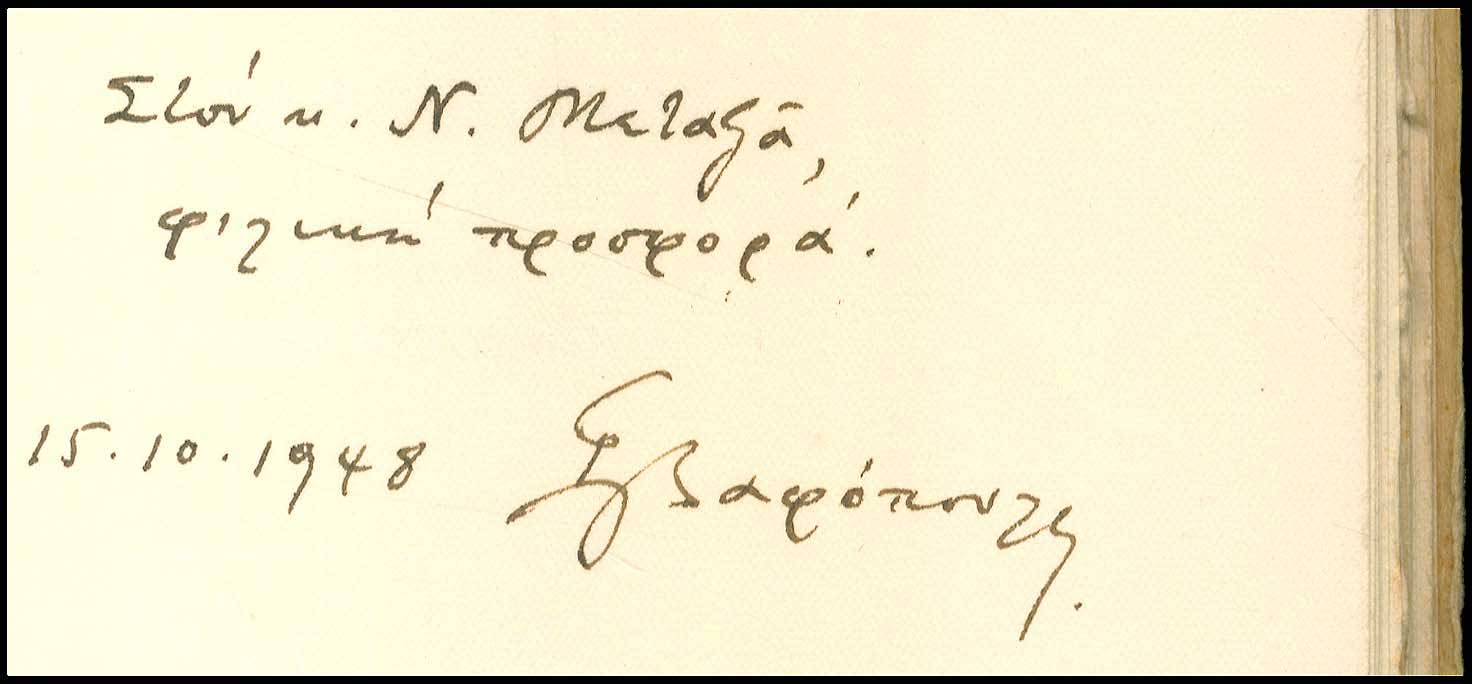 Στόν κ. Ν. Μεταξᾶ,
φιλική προσφορά.
15.10.1948 Γ Βαφόπουλος.